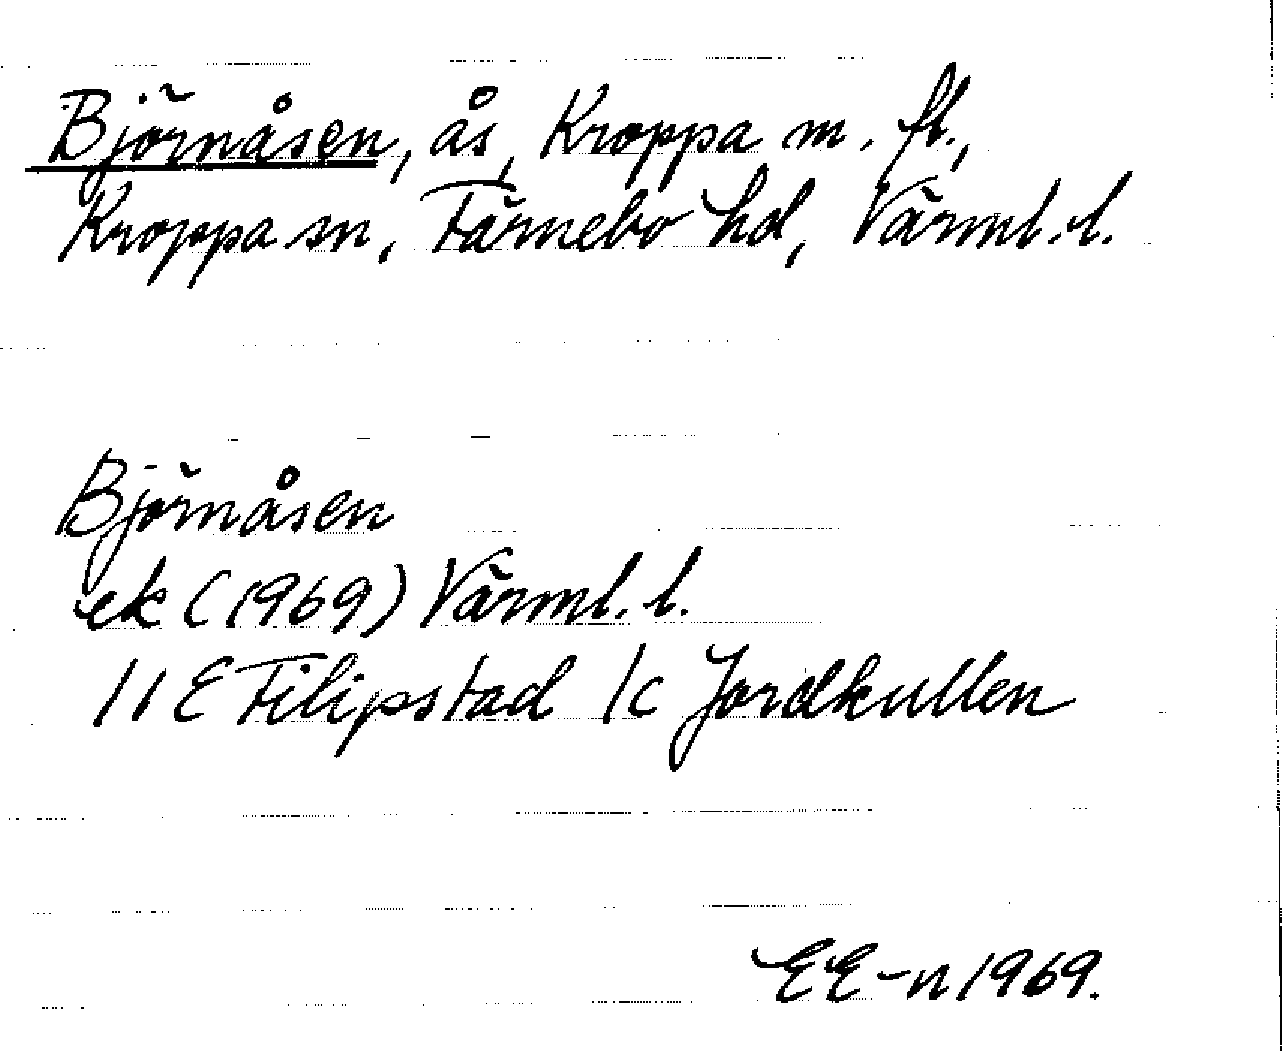 Björnåsen, ås, Kroppa m. fl.,
Kroppa sn, Färnebo hd, Värml. l.
Björnåsen
ek (1969) Värml. l.
11 E Filipstad 1c Jordkullen
EE-n 1969.